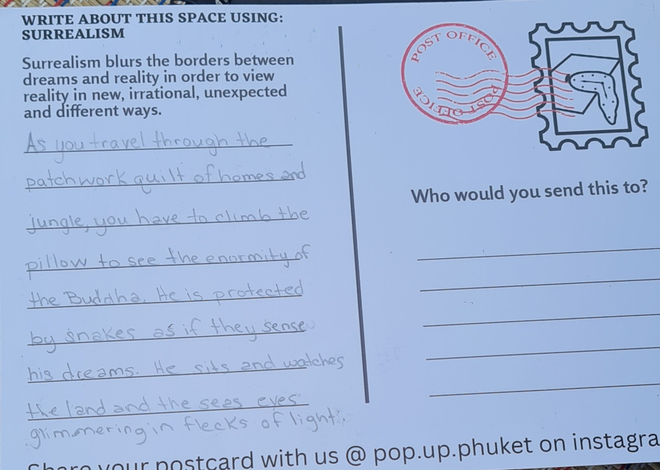 WRITE ABOUT THIS SPACE USING:
SURREALISM
Surrealism blurs the borders between
dreams and reality in order to view
reality in new, irrational, unexpected
and different ways.
As you travel through the
patchwork quilt of homes and
jungle, you have to climb the
pillow to see the enormity of
the Buddha. He is protected
by snakes as if they sense
his dreams. He sits and watches
the land and the sees eyes
glimmering in flecks of light.
POST OFFICE
POST OFFICE
Who would you send this to?
Share your postcard with us @ pop.up.phuket on instagra